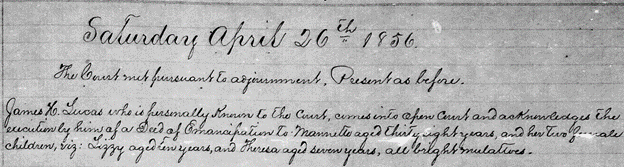 Saturday April 26th 1856.
The Court met pursuant to adjournment, Present as before.
James H. Lucas who is personally known to the Court, comes into open Court and acknowledges the
execution by him of a Deed of Emancipation to: Mannette aged thirty eight years, and her two female
children, viz: Lizzy aged ten years, and Theresa aged seven years, all bright mulatives.